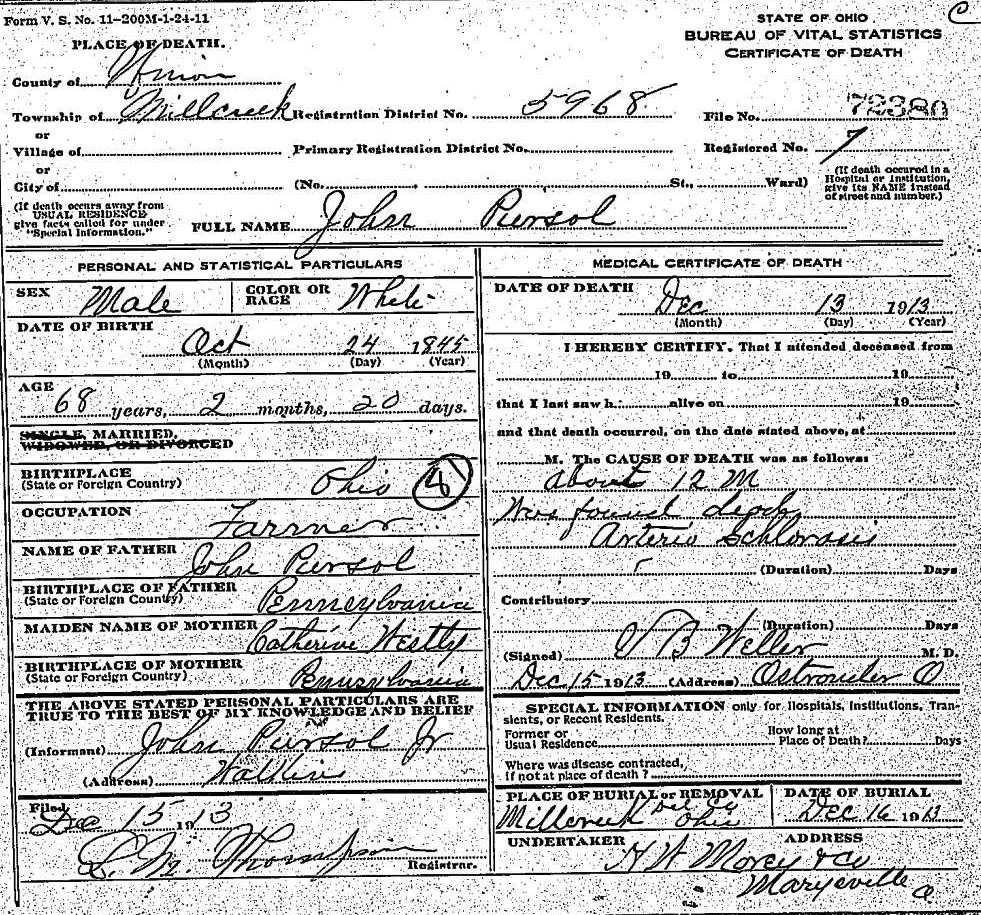 Form V. S. No. 11–200M–1-24-11
STATE OF OHIO
BUREAU OF VITAL STATISTICS
CERTIFICATE OF DEATH
PLACE OF DEATH.
County of Union
Township of Millcreek Registration District No. 5968 File No. 72380
or
Village of Primary Registration District No. Registered No. 7
or
City of (No. St., Ward)
(If death occured in a Hospital or Institution, give its NAME instead of street and number.)
(If death occurs away from USUAL RESIDENCE give facts called for under "Special Information.")
FULL NAME John Piersol
PERSONAL AND STATISTICAL PARTICULARS
SEX Male COLOR OR RACE White
DATE OF BIRTH
Oct 24 1845
(Month) (Day) (Year)
AGE
68 years, 2 months, 20 days.
SINGLE, MARRIED,
WIDOWED, OR DIVORCED
BIRTHPLACE
(State or Foreign Country) Ohio
OCCUPATION Farmer
NAME OF FATHER John Piersol
BIRTHPLACE OF FATHER
(State or Foreign Country) Pennsylvania
MAIDEN NAME OF MOTHER Catherine Westly
BIRTHPLACE OF MOTHER
(State or Foreign Country) Pennsylvania
THE ABOVE STATED PERSONAL PARTICULARS ARE
TRUE TO THE BEST OF MY KNOWLEDGE AND BELIEF
(Informant) John Piersol Jr
(Address)
Filed
Dec 15 1913
Thompson Registrar.
MEDICAL CERTIFICATE OF DEATH
DATE OF DEATH
Dec 13 1913
(Month) (Day) (Year)
I HEREBY CERTIFY, That I attended deceased from
19 to 19
that I last saw h alive on 19
and that death occurred, on the date stated above, at
M. The CAUSE OF DEATH was as follows:
about 12 M
Was found dead
Arterio Schlorasis
(Duration) Days
Contributory
(Duration) Days
(Signed) B Weller M. D.
Dec 15 1913 (Address) Ostrander O
SPECIAL INFORMATION only for Hospitals, Institutions, Transients, or Recent Residents.
Former or
Usual Residence
How long at
Place of Death? Days
Where was disease contracted,
If not at place of death?
PLACE OF BURIAL or REMOVAL
Millcreek Del Co
Ohio
DATE OF BURIAL
Dec 16 1913
UNDERTAKER ADDRESS
H W Morey & Co
Marysville O